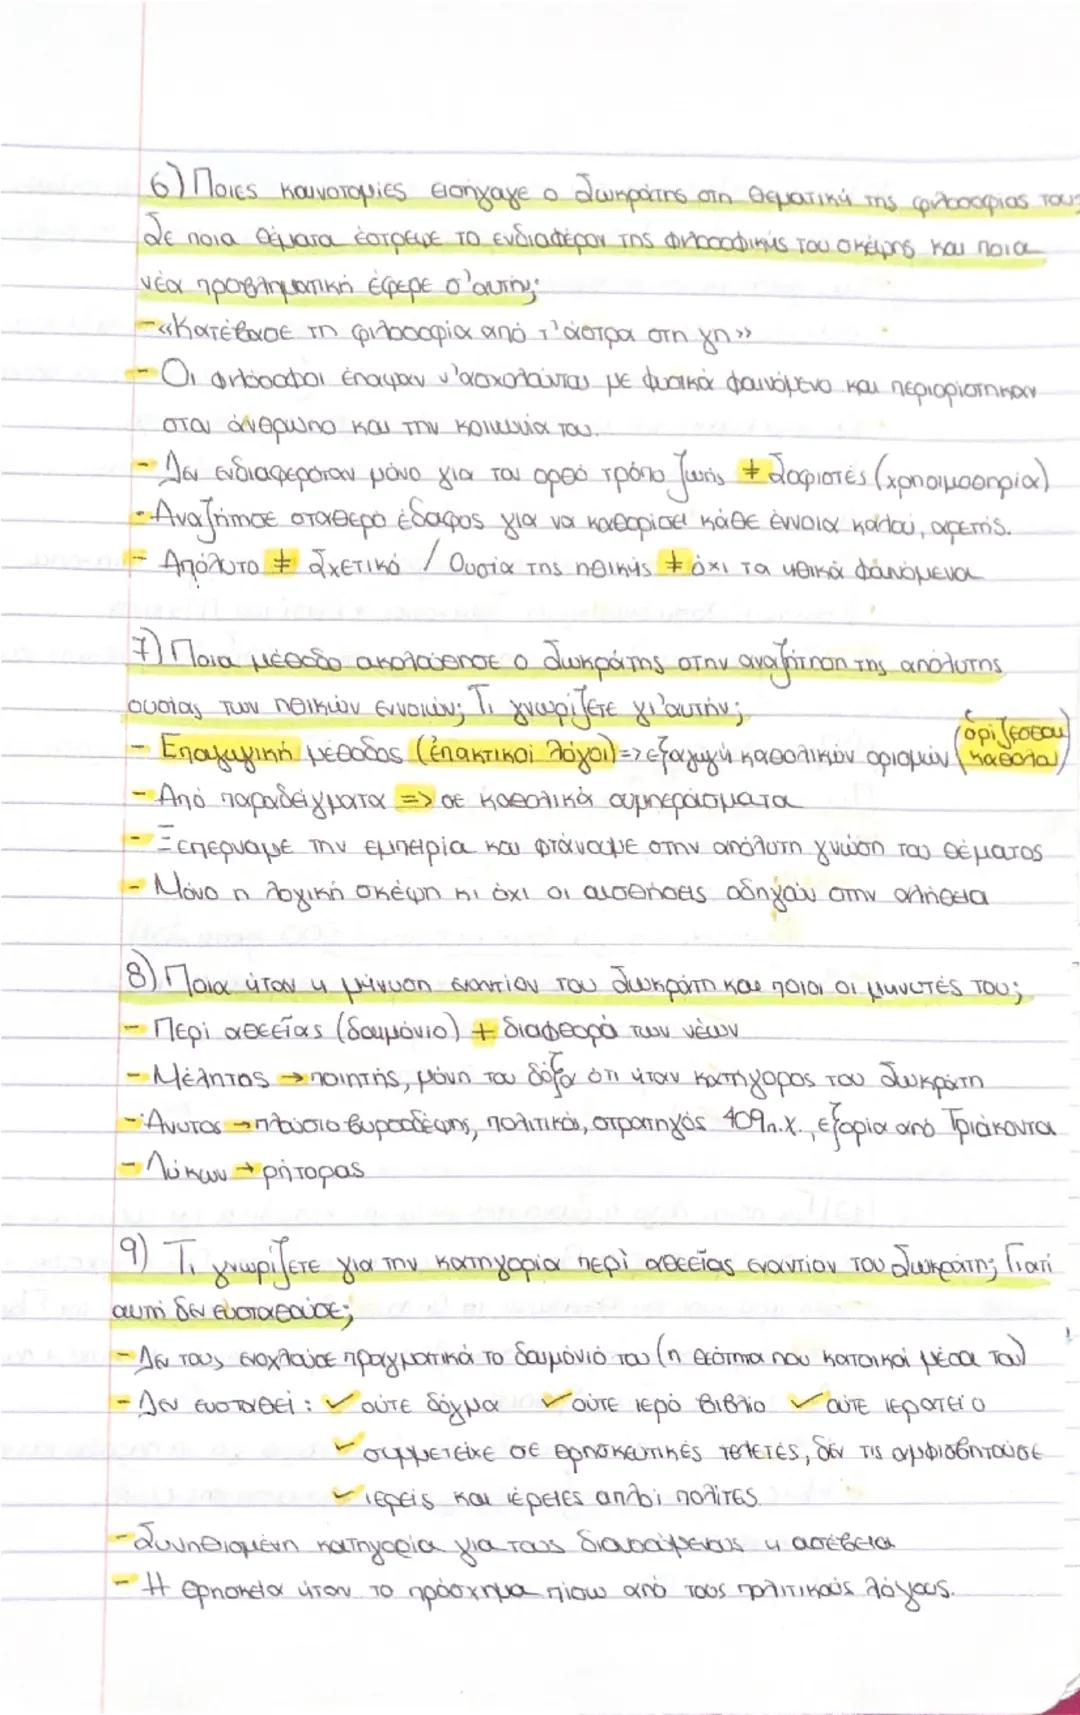 6) Ποιες καινοτομίες εισήγαγε ο Σωκράτης στη θεματική της φιλοσοφίας του;
Σε ποια θέματα έστρεψε το ενδιαφέρον της φιλοσοφικής του σκέψης και ποια
νέα προβληματική έφερε σ'αυτήν;
-«Κατέβασε τη φιλοσοφία από τ'άστρα στη γη»
- Οι φιλόσοφοι έπαψαν ν'ασχολούνται με φυσικά φαινόμενο και περιορίστηκαν
στον άνθρωπο και την κοινωνία του.
- Δεν ενδιαφερόταν μόνο για τον ορθό τρόπο ζωής ≠ Σοφιστές (χρησιμοθηρία)
- Αναζήτησε σταθερό έδαφος για να καθορίσει κάθε έννοια καλού, αρετής.
- Απόλυτο ≠ Σχετικό / Ουσία της ηθικής ≠ όχι τα ηθικά φαινόμενα
7) Ποια μέθοδο ακολούθησε ο Σωκράτης στην αναζήτηση της απόλυτης
ουσίας των ηθικών εννοιών; Τι γνωρίζετε γι'αυτήν;
- Επαγωγική μέθοδος (ἐπακτικοί λόγοι) => εξαγωγή καθολικών ορισμών (ὁρίζεσθαι καθόλου)
- Από παραδείγματα => σε καθολικά συμπεράσματα
- Ξεπερνάμε την εμπειρία και φτάνουμε στην απόλυτη γνώση του θέματος
- Μόνο η λογική σκέψη κι όχι οι αισθήσεις οδηγούν στην αλήθεια
8) Ποια ήταν η μήνυση εναντίον του Σωκράτη και ποιοι οι μηνυτές του;
- Περί αθεΐας (δαιμόνιο) + διαφθορά των νέων
- Μέλητος → ποιητής, μόνη του δόξα ότι ήταν κατήγορος του Σωκράτη
- Άνυτος → πλούσιο βυρσοδέψης, πολιτικός, στρατηγός 409π.Χ., εξορία από Τριάκοντα
- Λύκων → ρήτορας
9) Τι γνωρίζετε για την κατηγορία περί αθεΐας εναντίον του Σωκράτη; Γιατί
αυτή δεν ευσταθούσε;
- Δεν τους ενοχλούσε πραγματικά το δαιμόνιό του (η θεότητα που κατοικοί μέσα του)
- Δεν ευσταθεί: ✓ ούτε δόγμα ✓ ούτε ιερό βιβλίο ✓ ούτε ιερατείο
✓ συμμετείχε σε θρησκευτικές τελετές, δεν τις αμφισβητούσε
✓ ιερείς και ιέρειες απλοί πολίτες.
- Συνηθισμένη κατηγορία για τους διανοούμενους η ασέβεια
- Η θρησκεία ήταν το πρόσχημα πίσω από τους πολιτικούς λόγους.